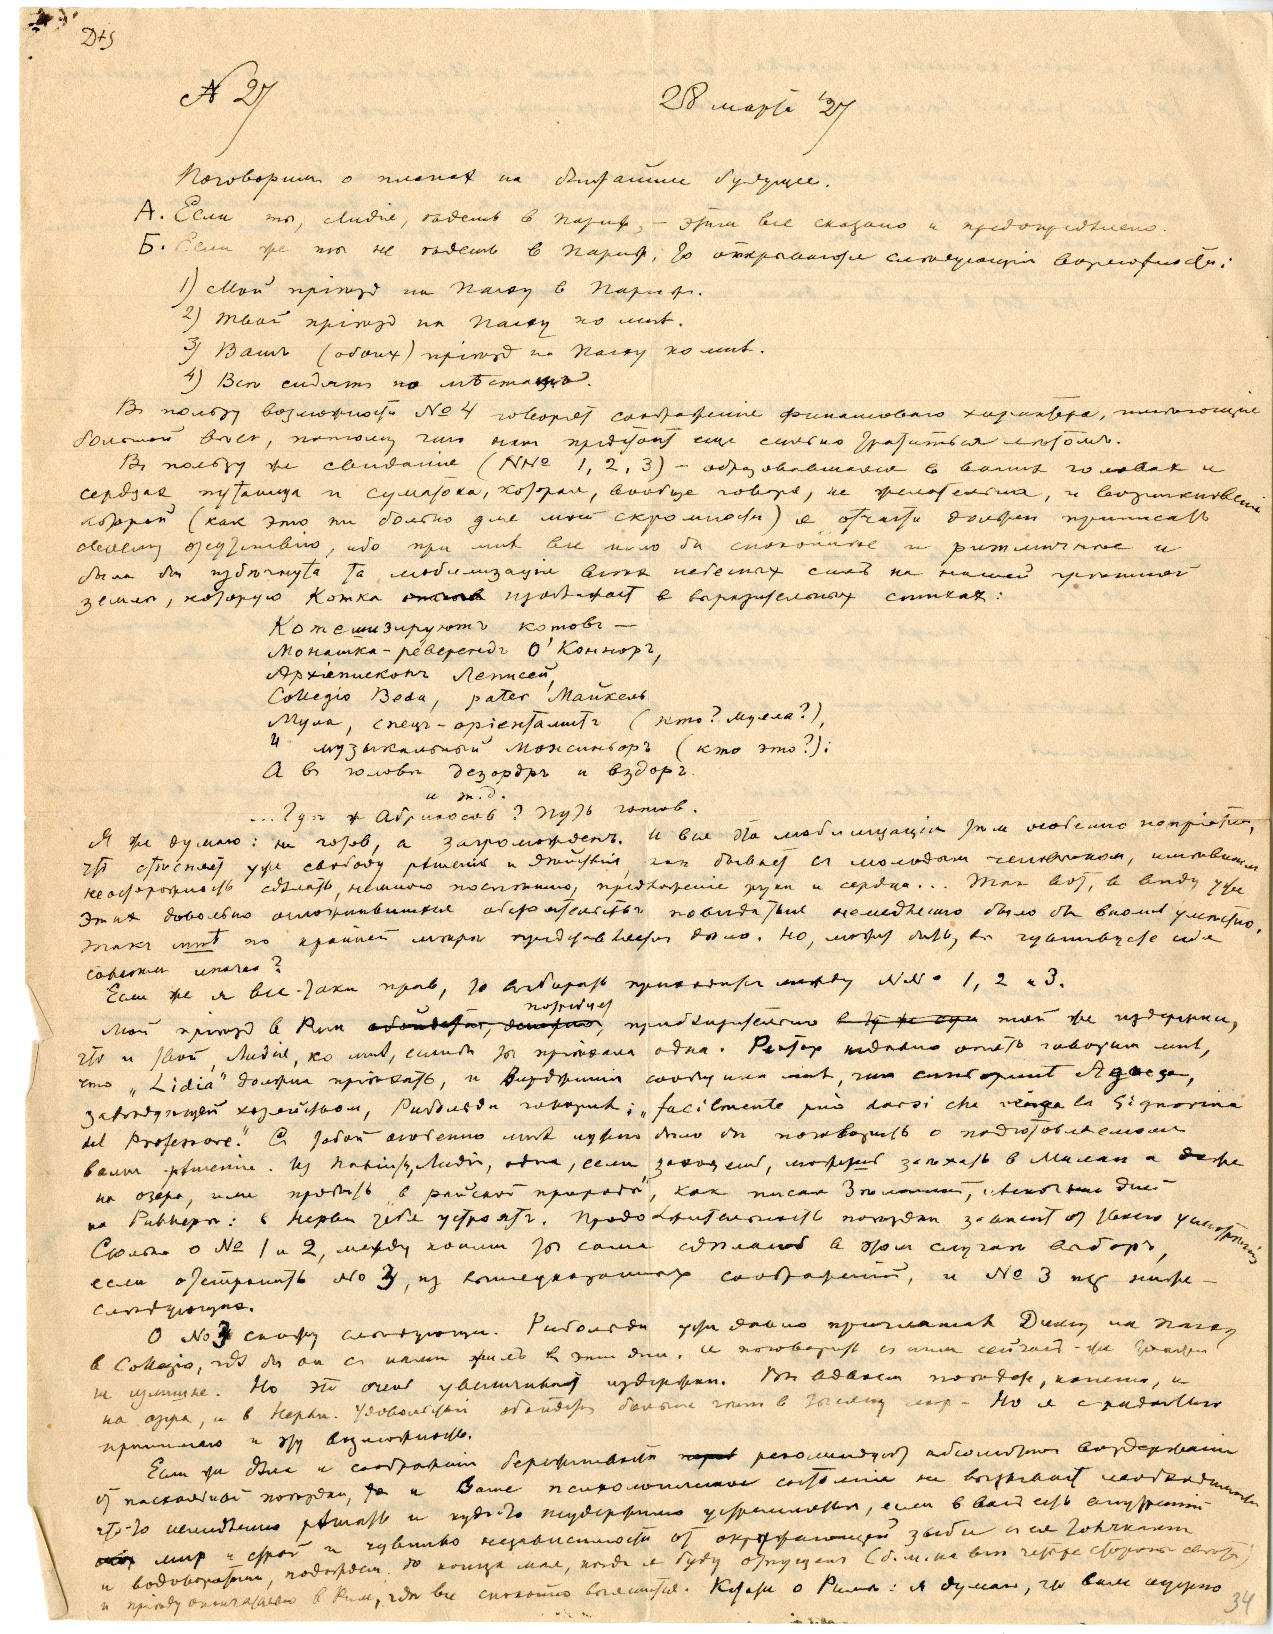 D+S
N 27
28 марта '27
Поговорим о планах на ближайшее будущее.
А. Если ты, Лидия, едешь в Париж, – этим все сказано и предопределено.
Б. Если же ты не едешь в Париж, то открываются следующия возможности:
1) Мой пріезд на Пасху в Париж.
2) Твой пріезд на Пасху ко мнѣ.
3) Ваш (обоих) пріезд на Пасху ко мнѣ.
4) Всѣ сидят по мѣстам.
В пользу возможности № 4 говорят соображенія финансоваго характера, имеющие
большой вѣс, потому что нам предстоит еще сильно тратиться летом.
В пользу же свиданія (NNº 1, 2, 3) – образовавшаяся в ваших головах и
сердцах путаница и суматоха, которая, вообще говоря, не желательна, и возникновеніе
которой (как это ни больно для моей скромности) я отчасти должен приписать
своему отсутствію, ибо при мнѣ все шло бы спокойнее и ритмичнее и
была бы избѣгнута та мобилизація всех небесных сил на нашей грешной
земле, которую Котка изображает в выразительных стихах:
Котешизируютъ котовъ —
Монашка-реверендъ О'Конноръ,
Архіепископъ Леписей,
Collegio Beda, pater Майкель
Мула, спецъ-оріенталистъ (кто? мулла?),
И музыкальный Монсиньоръ (кто это?):
А въ головѣ дезордръ и вздоръ.
и т.д.
... Гдѣ ж Абрикосов? Путь готов.
Я же думаю: не готов, а загроможден. И вся эта мобилизація тѣм особенно непріятна,
что стѣсняет уже свободу рѣшенія и дѣйствія, как бывает съ молодым человѣком, имевшим
неосторожность сдѣлать, немного поспешно, предложение руки и сердца... Так вот, в виду уже
этих довольно осложнившихся обстоятельств повидаться немедленно было бы вполнѣ уместно.
Так мнѣ по крайней мѣрѣ представляется дѣло. Но, может быть, вы чувствуете себя
совсем иначе?
Если же я все-таки прав, то выбирать приходится между NNº 1, 2 и 3.
Мой пріезд в Рим потребует приблизительно тѣ же издержки,
что и твой, Лидія, ко мнѣ, если бы ты пріехала одна. Ректор недавно опять говорил мнѣ,
что „Lidia“ должна пріехать, и сообщила мнѣ, что
заведующей хозяйством, Рибольди говорит: „facilmente può darsi che venga la Signorina
del Professore“. С тобой особенно мнѣ нужно было бы поговорить о подготовляемом
вами рѣшеніи. Из Павіи ты, Лидія, одна, если захочешь, можешь заехать в Милан и даже
на озера, или пробыть в райской природѣ, как писал Зелинский, нѣсколько дней
на Ривьерѣ: в Нерви тебя устроят. Продолжительность поездки зависит от твоего усмотрѣнія
Сколько о № 1 и 2, между коими ты сама сдѣлаешь в этом случаѣ выбор,
если отстранить № 3, из вышеуказанных соображеній, и № 3 из ниже-
слѣдующих.
О № 3 скажу следующее. Рибольди уже давно приглашал Диму на Пасху
в Collegio, гдѣ бы он с нами жил в эти дни. И поговорить с ним сейчас-же
не излишне. Но это очень увеличивает издержки. Вы вдвоем поехали, конечно, и
на озера, и в Нерви. Удовольствіе обойдется больше чем в тысячу лир – Но я с радостью
принимаю и эту возможность.
Если же дѣла и соображенія бережливости рекомендуют абсолютное воздержаніе
от пасхальной поездки, и Ваше психологическое состояніе не вызывает необходимости
что-то немедленно рѣшать и куда-то неудержимо устремляться, если в вас есть внутренний
мир и строй и чувство независимости от окружающей зыби и ея толчками
и водоворотами, подождем до конца мая, когда я буду отпущен
и пріеду окончательно в Рим, где все спокойно выяснится. Кстати о Римѣ: я думаю, что вам нужно
34